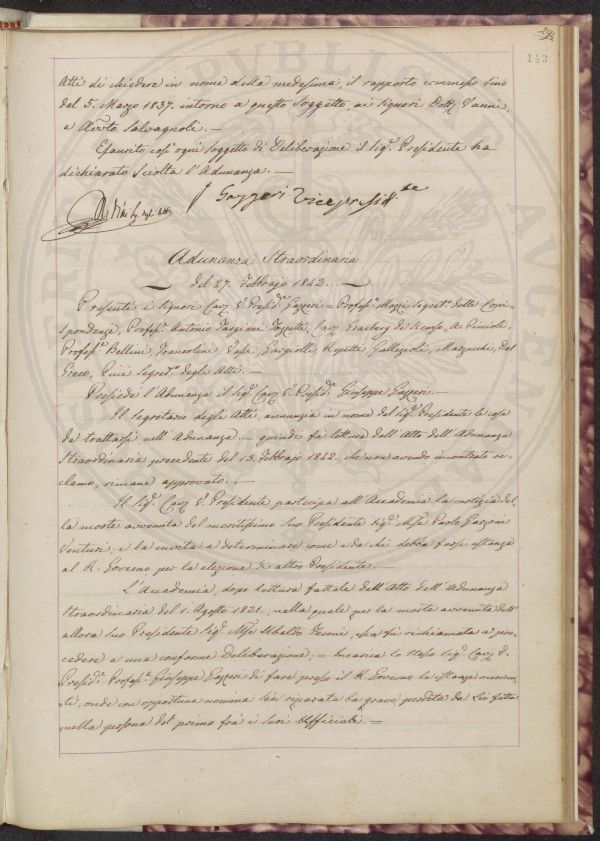 143
Atti di chiedere in nome della medesima, il rapporto commesso fino
del 5. Marzo 1837. intorno a questo Soggetto, ai Signori Dott. Vanni,
e Avvto Salvagnoli. —
Esaurito così ogni soggetto di Deliberazione il Sigr. Presidente ha
dichiarato Sciolta l'Adunanza. —
Gazzeri Vicepresidte
Adunanza Straordinaria
del 27. Febbrajo 1842. —
Presenti i Signori Cav. V. Presidte Gazzeri = Professr. Mazzi Segret. delle Corri-
spondenze, Profess. Antonio Targioni Tozzetti, Cav.
Professi Bellini, Franceschi, Gargiolli, Repetti, Gallizioli, Mazzuchi, Del
Greco, Pini Segret. degli Atti. —
Presiede l'Adunanza il Sigr. Cav. V. Presidte Giuseppe Gazzeri —
Il Segretario degli Atti, annunzia in nome del Sigr. Presidente le cose
da trattarsi nell'Adunanza — quindi fa lettura dell'Atto dell'Adunanza
Straordinaria precedente del 13. Febbrajo 1842., che non avendo incontrato re-
clamo, rimane approvato. —
Il Sigr. Cav. V. Presidente partecipa all'Accademia la notizia del
la morte avvenuta del meritissimo Suo Presidente Sigr. Paolo Garzoni
Venturi, e la invita a determinare come e da chi debba farsi istanza
al R. Governo per la elezione di altro Presidente. —
L'Accademia, dopo lettura fattale dell'Atto dell'Adunanza
Straordinaria del 1. Agosto 1821., nella quale per la morte avvenuta dell'
allora suo Presidente Sigr. Ubaldo Feroni, essa fu richiamata a pro-
cedere a una conforme Deliberazione, = Incarica lo stesso Sigr. Cav. V.
Presidte Profess. Giuseppe Gazzeri di fare presso il R. Governo le istanze occorren-
ti, onde con opportuna nomina sia riparata la grave perdita da Lei fatta
nella persona del primo frà i suoi Uffiziali. =